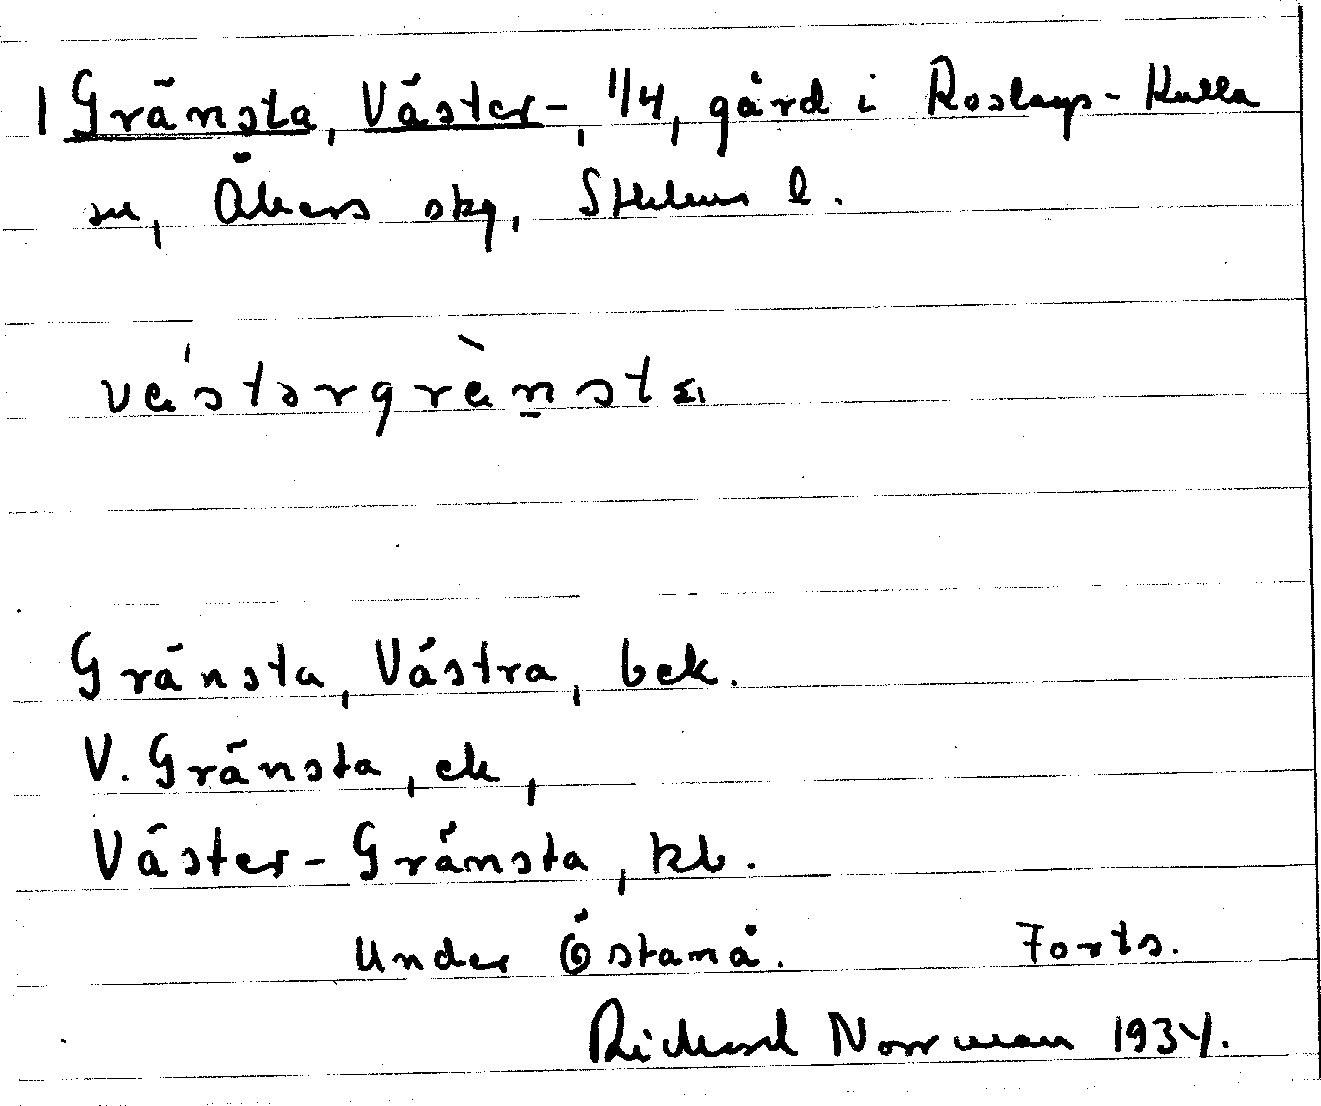 1 Gränsta, Väster-, 1/4, gård i Roslags-Kulla
sn, Åkers skg, Sthlms l.
Gränsta, Västra, bek.
V. Gränsta, ek,
Väster-Gränsta, kb.
Under Östanå. Forts.
Richard Norrman 1934.